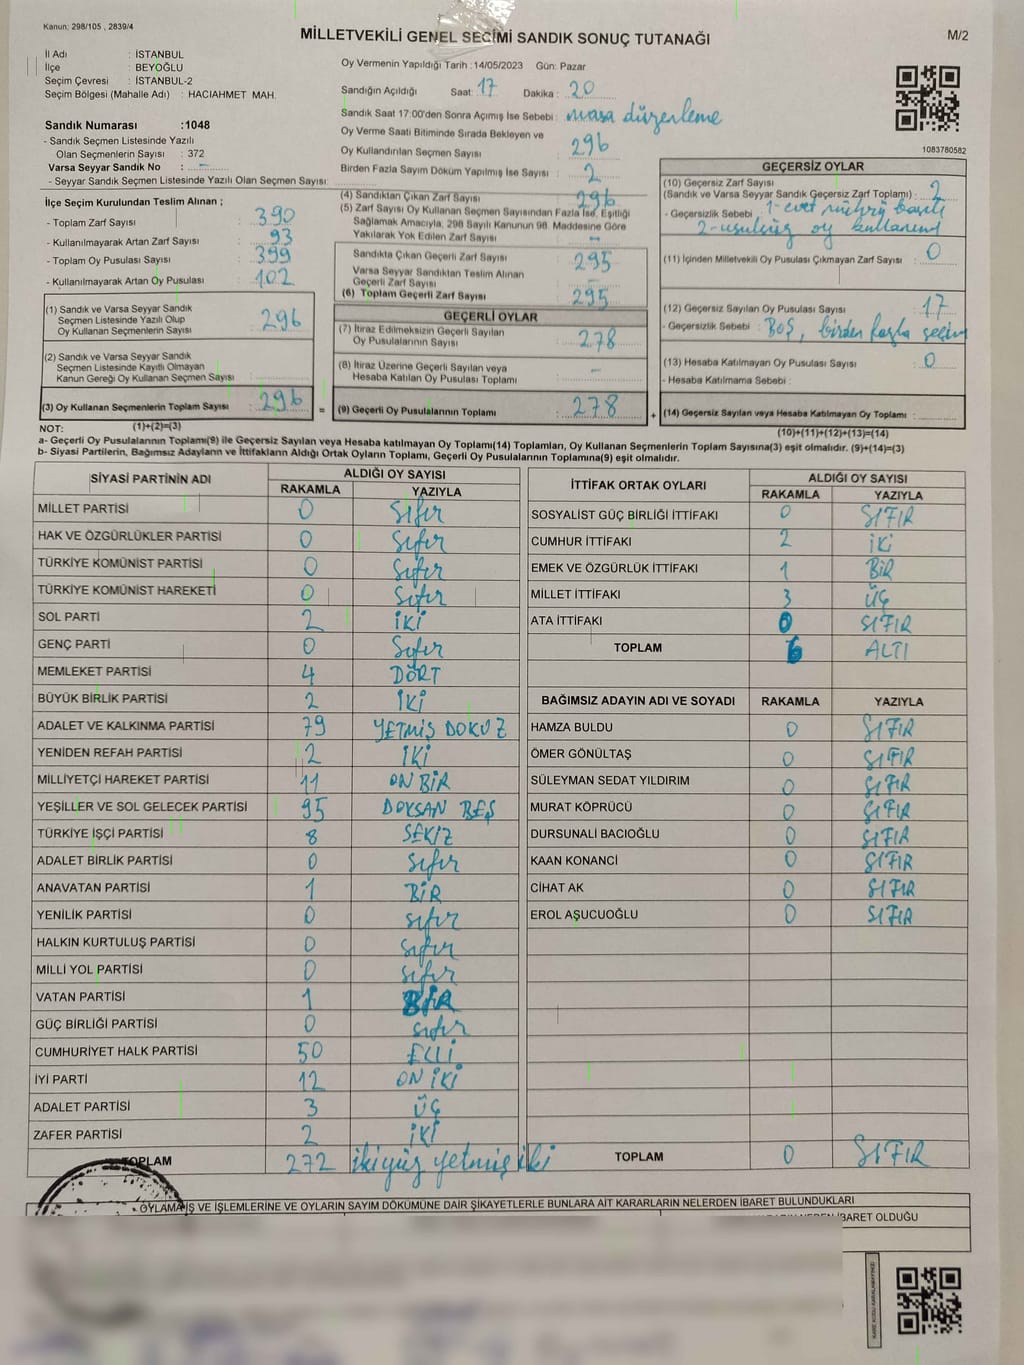 Kanun: 298/105 , 2839/4
MİLLETVEKİLİ GENEL SEÇİMİ SANDIK SONUÇ TUTANAĞI
M/2
İl Adı : İSTANBUL
İlçe : BEYOĞLU
Seçim Çevresi : İSTANBUL-2
Seçim Bölgesi (Mahalle Adı) : HACIAHMET MAH.
Sandık Numarası :1048
- Sandık Seçmen Listesinde Yazılı
Olan Seçmenlerin Sayısı : 372
Varsa Seyyar Sandık No : -
- Seyyar Sandık Seçmen Listesinde Yazılı Olan Seçmen Sayısı:
Oy Vermenin Yapıldığı Tarih :14/05/2023 Gün: Pazar
Sandığın Açıldığı Saat: 17 Dakika : 20
Sandık Saat 17:00'den Sonra Açımış İse Sebebi : masa düzenleme
Oy Verme Saati Bitiminde Sırada Bekleyen ve
Oy Kullandırılan Seçmen Sayısı : 296
Birden Fazla Sayım Döküm Yapılmış İse Sayısı : 2
1083780582
İlçe Seçim Kurulundan Teslim Alınan ;
- Toplam Zarf Sayısı : 390
- Kullanılmayarak Artan Zarf Sayısı : 93
- Toplam Oy Pusulası Sayısı : 399
- Kullanılmayarak Artan Oy Pusulası : 102
(1) Sandık ve Varsa Seyyar Sandık
Seçmen Listesinde Yazılı Olup
Oy Kullanan Seçmenlerin Sayısı : 296
(2) Sandık ve Varsa Seyyar Sandık
Seçmen Listesinde Kayıtlı Olmayan
Kanun Gereği Oy Kullanan Seçmen Sayısı :
(3) Oy Kullanan Seçmenlerin Toplam Sayısı : 296
(1)+(2)=(3)
(4) Sandıktan Çıkan Zarf Sayısı : 296
(5) Zarf Sayısı Oy Kullanan Seçmen Sayısından Fazla İse, Eşitliği
Sağlamak Amacıyla, 298 Sayılı Kanunun 98. Maddesine Göre
Yakılarak Yok Edilen Zarf Sayısı : -
Sandıkta Çıkan Geçerli Zarf Sayısı : 295
Varsa Seyyar Sandıktan Teslim Alınan
Geçerli Zarf Sayısı : -
(6) Toplam Geçerli Zarf Sayısı : 295
GEÇERLİ OYLAR
(7) İtiraz Edilmeksizin Geçerli Sayılan
Oy Pusulalarının Sayısı : 278
(8) İtiraz Üzerine Geçerli Sayılan veya
Hesaba Katılan Oy Pusulası Toplamı : -
= (9) Geçerli Oy Pusulalarının Toplamı : 278 +
GEÇERSİZ OYLAR
(10) Geçersiz Zarf Sayısı
(Sandık ve Varsa Seyyar Sandık Geçersiz Zarf Toplamı) : 2
- Geçersizlik Sebebi : 1- evet mührü basılı
2- usulsüz oy kullanımı
(11) İçinden Milletvekili Oy Pusulası Çıkmayan Zarf Sayısı : 0
(12) Geçersiz Sayılan Oy Pusulası Sayısı : 17
- Geçersizlik Sebebi : BOŞ, birden fazla seçim
(13) Hesaba Katılmayan Oy Pusulası Sayısı : 0
- Hesaba Katılmama Sebebi :
(14) Geçersiz Sayılan veya Hesaba Katılmayan Oy Toplamı :
(10)+(11)+(12)+(13)=(14)
NOT:
a- Geçerli Oy Pusulalarının Toplamı(9) ile Geçersiz Sayılan veya Hesaba katılmayan Oy Toplamı(14) Toplamları, Oy Kullanan Seçmenlerin Toplam Sayısına(3) eşit olmalıdır. (9)+(14)=(3)
b- Siyasi Partilerin, Bağımsız Adayların ve İttifakların Aldığı Ortak Oyların Toplamı, Geçerli Oy Pusulalarının Toplamına(9) eşit olmalıdır.
SİYASİ PARTİNİN ADI ALDIĞI OY SAYISI
RAKAMLA YAZIYLA
MİLLET PARTİSİ 0 Sıfır
HAK VE ÖZGÜRLÜKLER PARTİSİ 0 Sıfır
TÜRKİYE KOMÜNİST PARTİSİ 0 Sıfır
TÜRKİYE KOMÜNİST HAREKETİ 0 Sıfır
SOL PARTİ 2 İKİ
GENÇ PARTİ 0 Sıfır
MEMLEKET PARTİSİ 4 DÖRT
BÜYÜK BİRLİK PARTİSİ 2 İKİ
ADALET VE KALKINMA PARTİSİ 79 YETMİŞ DOKUZ
YENİDEN REFAH PARTİSİ 2 İKİ
MİLLİYETÇİ HAREKET PARTİSİ 11 ON BİR
YEŞİLLER VE SOL GELECEK PARTİSİ 95 DOKSAN BEŞ
TÜRKİYE İŞÇİ PARTİSİ 8 SEKİZ
ADALET BİRLİK PARTİSİ 0 sıfır
ANAVATAN PARTİSİ 1 BİR
YENİLİK PARTİSİ 0 sıfır
HALKIN KURTULUŞ PARTİSİ 0 sıfır
MİLLİ YOL PARTİSİ 0 sıfır
VATAN PARTİSİ 1 BİR
GÜÇ BİRLİĞİ PARTİSİ 0 sıfır
CUMHURİYET HALK PARTİSİ 50 ELLİ
İYİ PARTİ 12 ON İKİ
ADALET PARTİSİ 3 ÜÇ
ZAFER PARTİSİ 2 İKİ
TOPLAM 272 ikiyüz yetmiş iki
İTTİFAK ORTAK OYLARI ALDIĞI OY SAYISI
RAKAMLA YAZIYLA
SOSYALİST GÜÇ BİRLİĞİ İTTİFAKI 0 SIFIR
CUMHUR İTTİFAKI 2 İKİ
EMEK VE ÖZGÜRLÜK İTTİFAKI 1 BİR
MİLLET İTTİFAKI 3 ÜÇ
ATA İTTİFAKI 0 SIFIR
TOPLAM 6 ALTI
BAĞIMSIZ ADAYIN ADI VE SOYADI RAKAMLA YAZIYLA
HAMZA BULDU 0 SIFIR
ÖMER GÖNÜLTAŞ 0 SIFIR
SÜLEYMAN SEDAT YILDIRIM 0 SIFIR
MURAT KÖPRÜCÜ 0 SIFIR
DURSUNALİ BACIOĞLU 0 SIFIR
KAAN KONANCİ 0 SIFIR
CİHAT AK 0 SIFIR
EROL AŞUCUOĞLU 0 SIFIR
TOPLAM 0 SIFIR
OYLAMA İŞ VE İŞLEMLERİNE VE OYLARIN SAYIM DÖKÜMÜNE DAİR ŞİKAYETLERLE BUNLARA AİT KARARLARIN NELERDEN İBARET BULUNDUKLARI
İBARET OLDUĞU